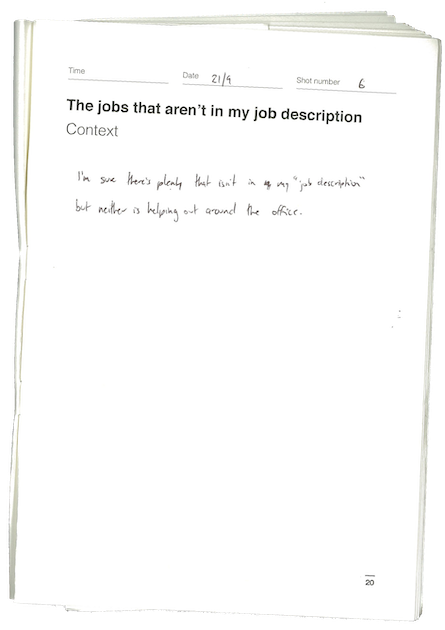 Time
Date 21/9
Shot number 6
The jobs that aren't in my job description
Context
I'm sure there's plenty that isn't in my "job description"
but neither is helping out around the office.
20